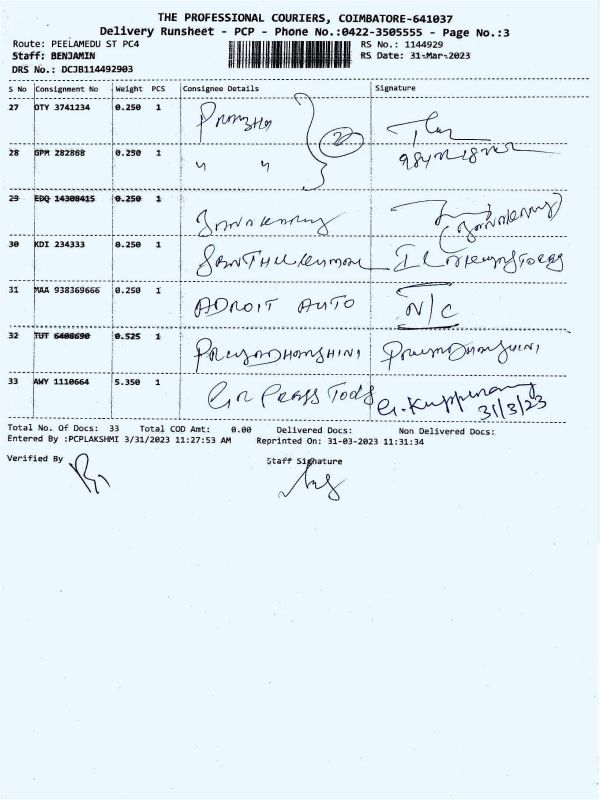 THE PROFESSIONAL COURIERS, COIMBATORE-641037
Delivery Runsheet - PCP - Phone No.:0422-3505555 - Page No.:3
Route: PEELAMEDU ST PC4 RS No.: 1144929
Staff: BENJAMIN RS Date: 31-Mar-2023
DRS No.: DCJB114492903
S No Consignment No Weight PCS Consignee Details Signature
27 OTY 3741234 0.250 1
28 GPM 282868 0.250 1 " "
29 EDQ 14308415 0.250 1
30 KDI 234333 0.250 1
31 MAA 938369666 0.250 1 ADROIT AUTO N/C
32 TUT 6408690 0.525 1 PRIYADHARSHINI PRIYADHARSHINI
33 AWY 1110664 5.350 1 GR PRESS TOOLS G. Kuppusamy
31/3/23
Total No. Of Docs: 33 Total COD Amt: 0.00 Delivered Docs: Non Delivered Docs:
Entered By :PCPLAKSHMI 3/31/2023 11:27:53 AM Reprinted On: 31-03-2023 11:31:34
Verified By Staff Signature